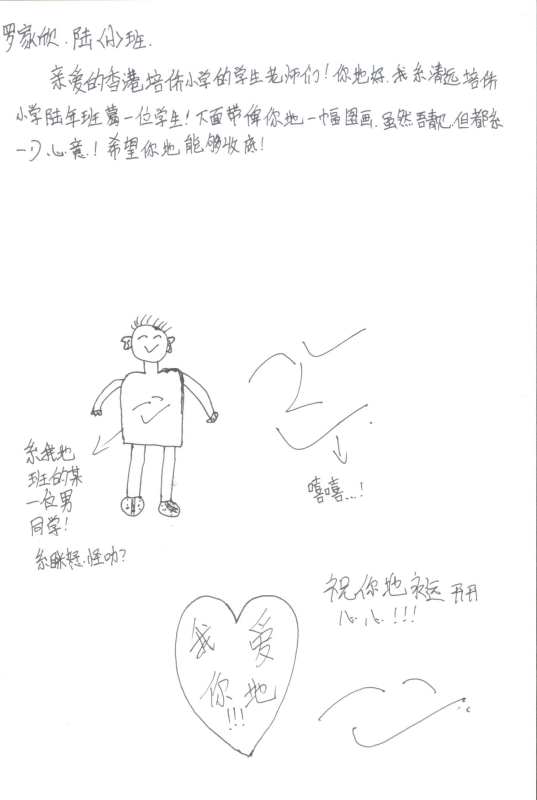 罗家欣.陆〈小〉班.
亲爱的香港培侨小学的学生老师们！你地好.我系清远培侨
小学陆年班嘅一位学生！下面带俾你地一幅图画.虽然吾靓.但都系
一D心意！希望你地能够收底！
系我地
班的某
一位男
同学！
系眯好怪叻？
嘻嘻...！
我 爱
你 地
!!!
祝你地永远 开开
心心!!!